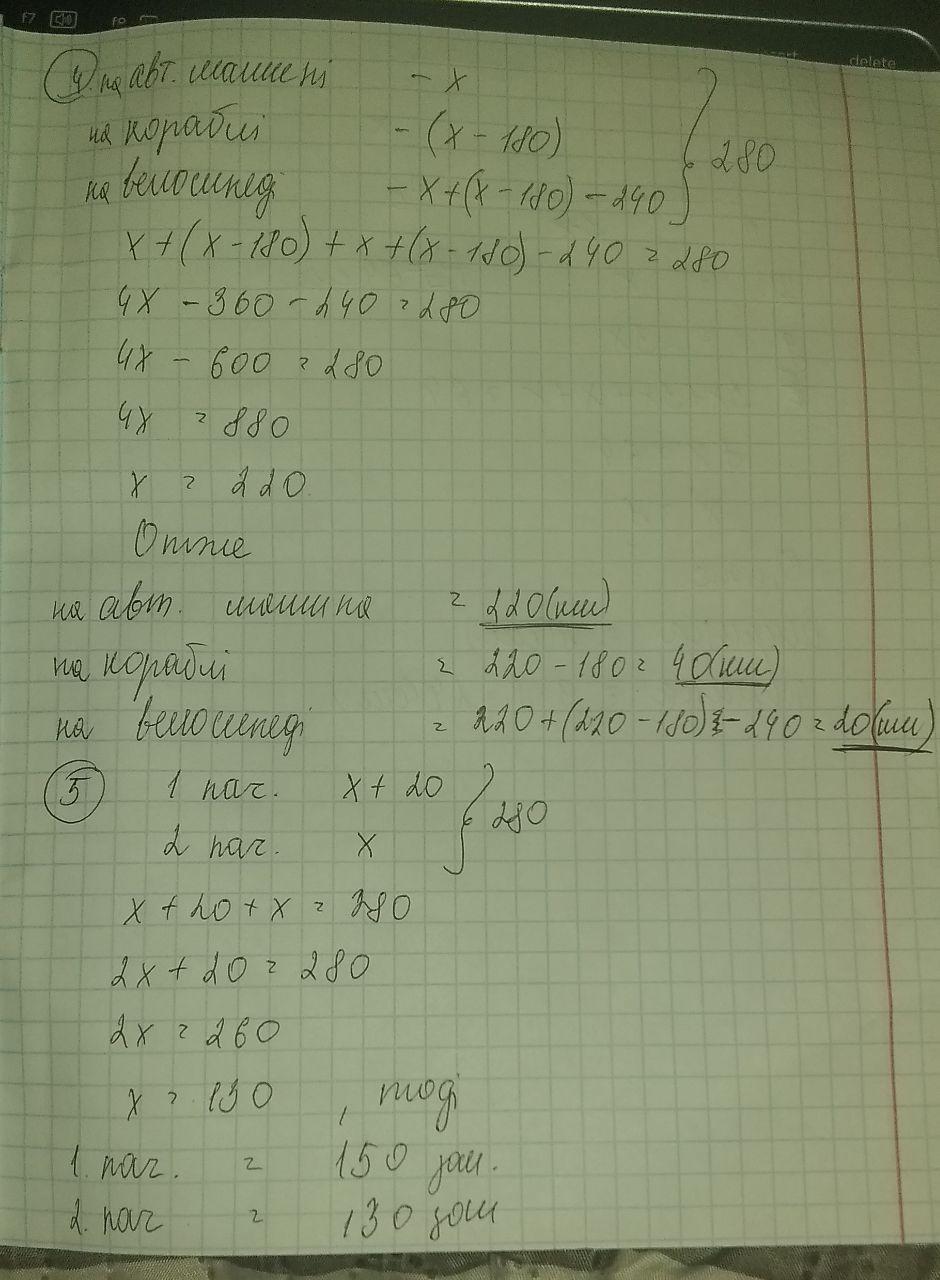 f7
delete
4. на авт. машині - x
на кораблі - (x - 180)
на велосипеді - x + (x - 180) - 240 } 280
x + (x - 180) + x + (x - 180) - 240 = 280
4x - 360 - 240 = 280
4x - 600 = 280
4x = 880
x = 220
Отже
на авт. машина = 220 (км)
на кораблі = 220 - 180 = 40 (км)
на велосипеді = 220 + (220 - 180) - 240 = 20 (км)
5 1 пач. x + 20
2 пач. x } 280
x + 20 + x = 280
2x + 20 = 280
2x = 260
x = 130 , тоді
1. пач. = 150 зош.
2. пач = 130 зош